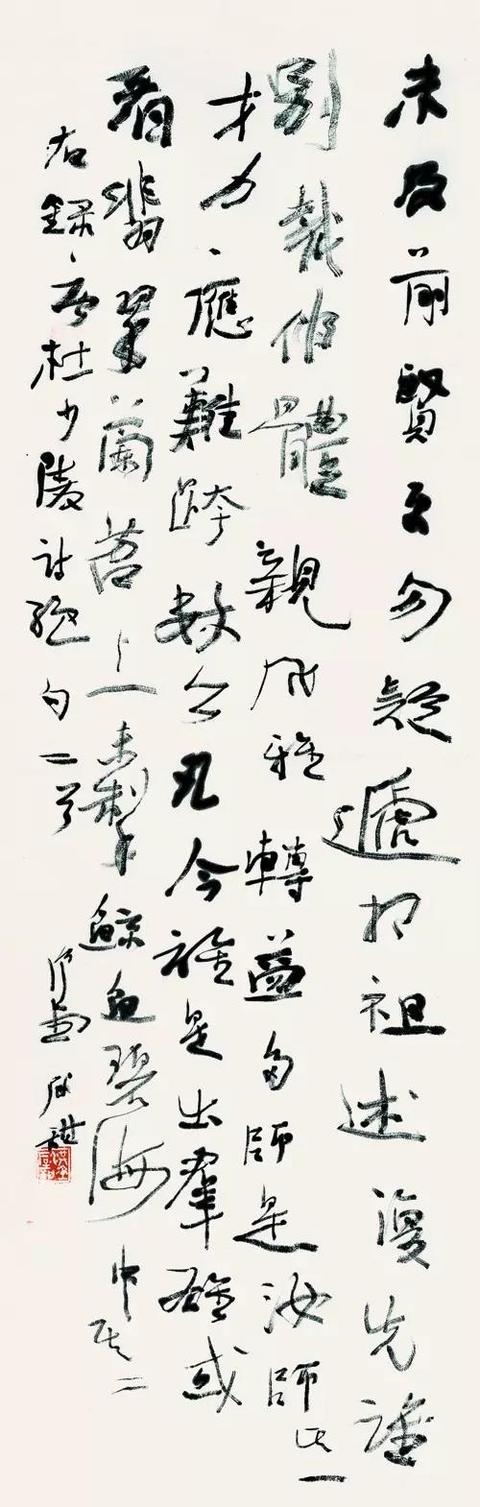 未及前賢更勿疑遞相祖述復先誰
別裁偽體親風雅轉益多師是汝師其一
才力應難跨數公凡今誰是出羣雄或
看翡翠蘭苕上未掣鯨魚碧海中其二
右錄唐杜少陵詩絕句二首